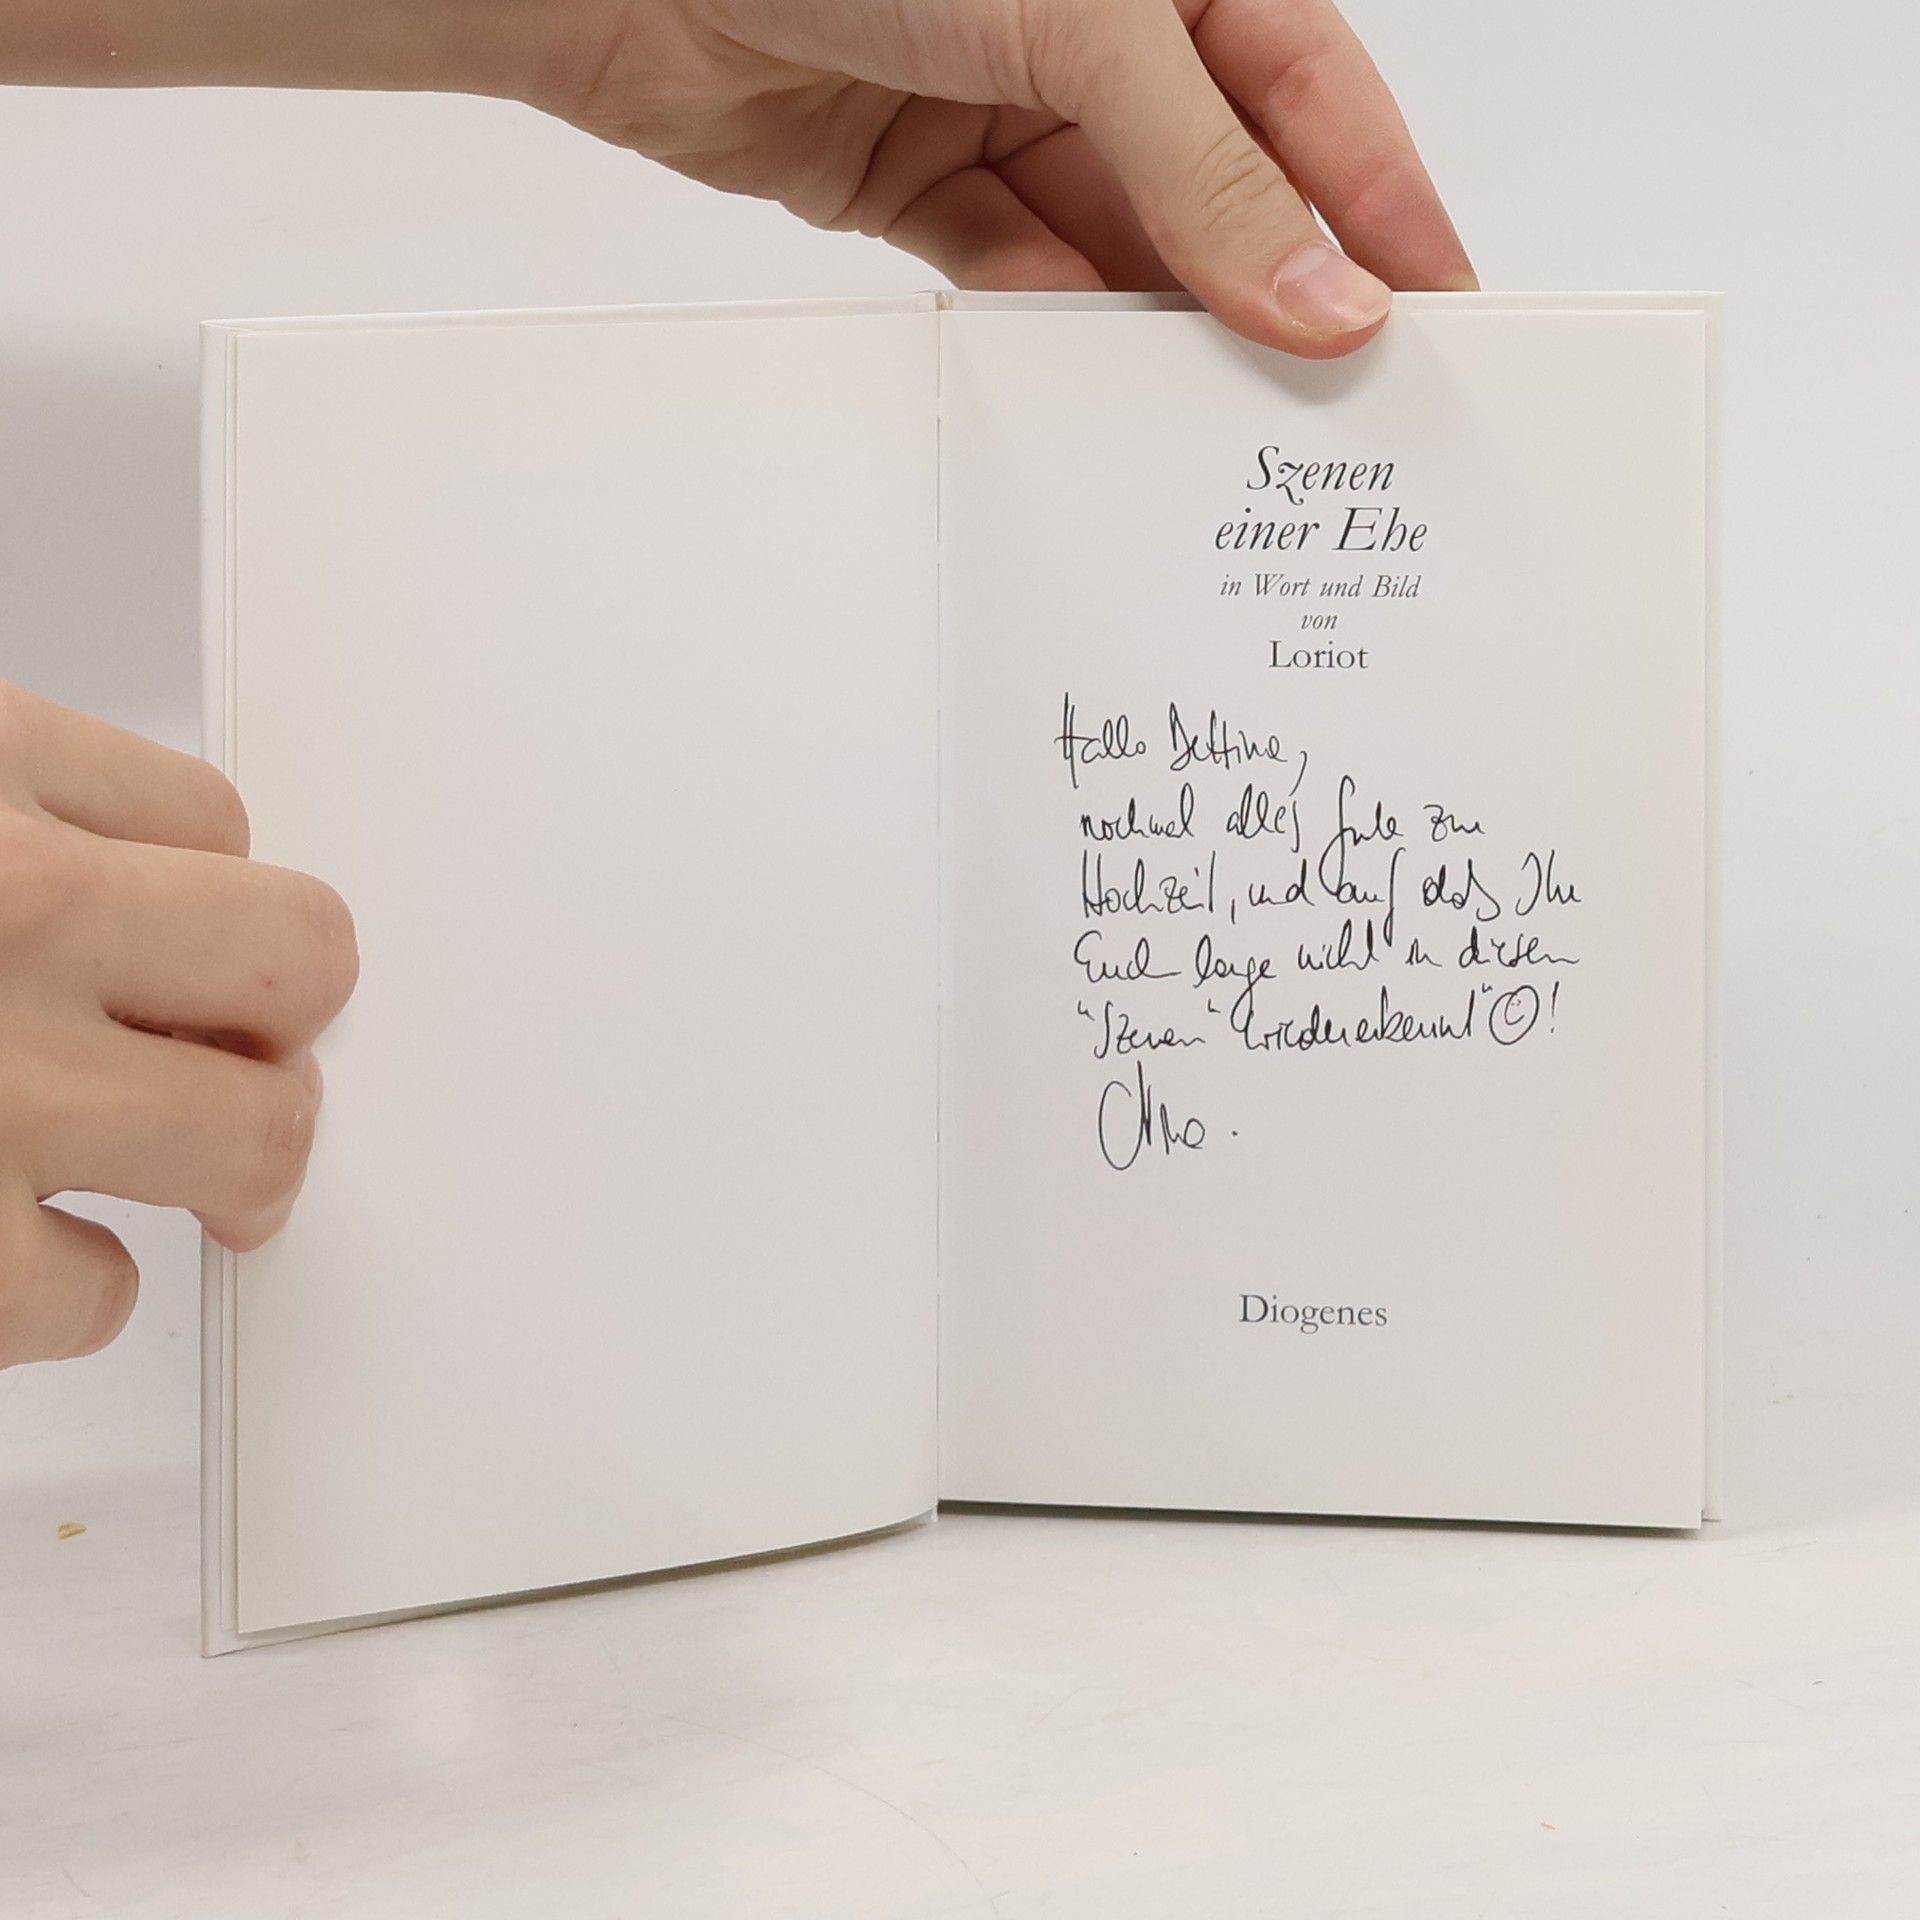 Szenen
einer Ehe
in Wort und Bild
von
Loriot
Hallo Bettina,
nochmal alles Gute zur
Hochzeit, und auf daß Ihr
Euch lange nicht in diesen
"Szenen" wiedererkennt" ☺!
Diogenes